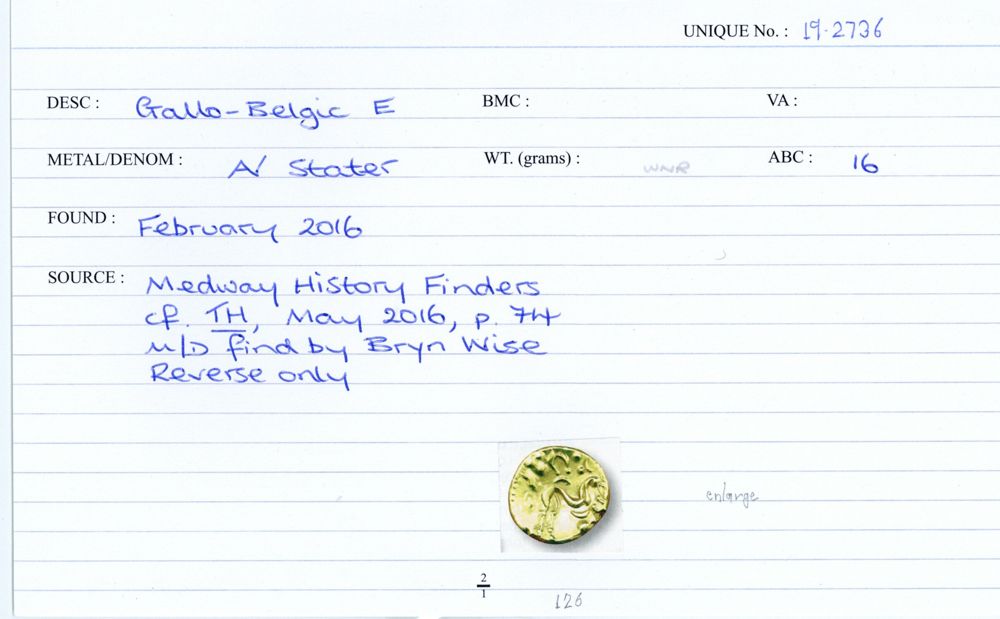 UNIQUE No. : 19.2736
DESC : Gallo-Belgic E BMC : VA :
METAL/DENOM : A/ Stater WT. (grams) : WNR ABC : 16
FOUND : February 2016
SOURCE : Medway History Finders
cf. TH, May 2016, p. 74
M/D find by Bryn Wise
Reverse only
enlarge
2
1
126